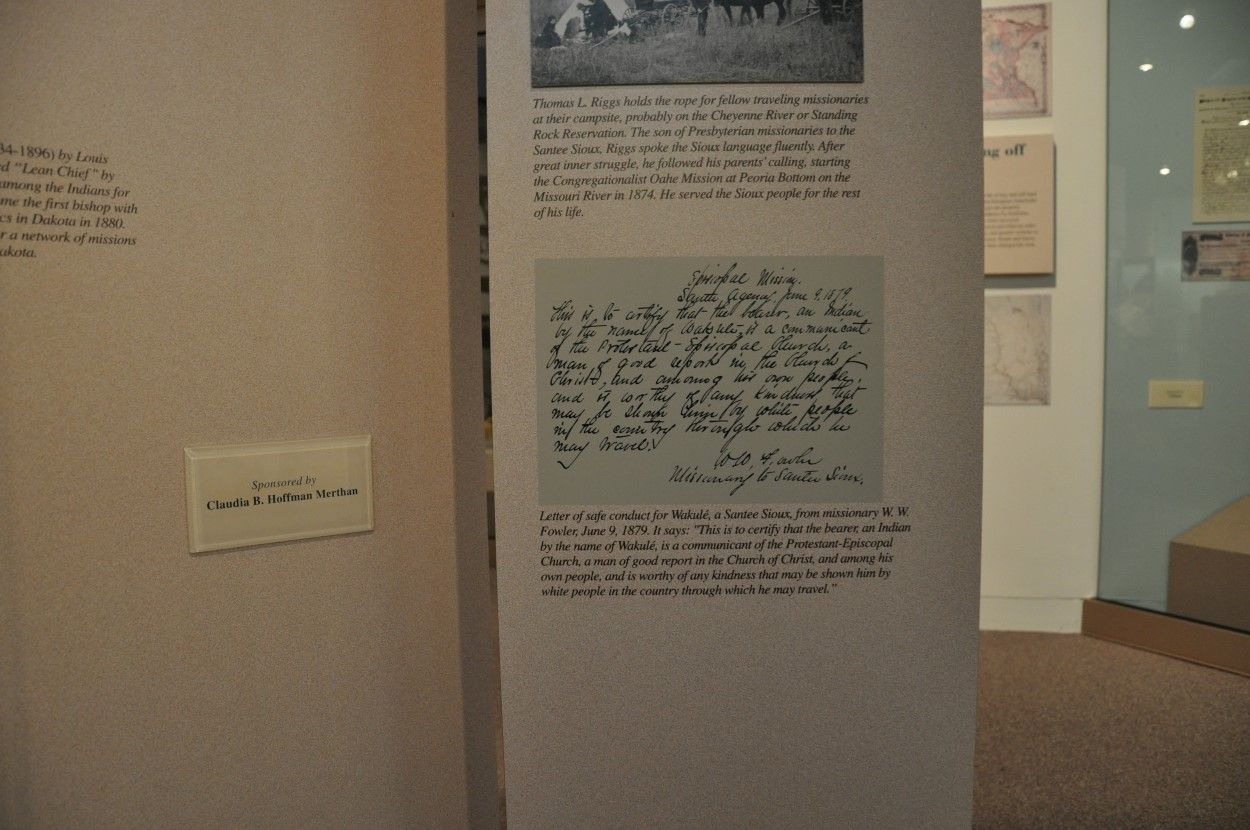 34-1896) by Louis
d "Lean Chief" by
among the Indians for
me the first bishop with
cs in Dakota in 1880.
r a network of missions
akota.
Sponsored by
Claudia B. Hoffman Merthan
Thomas L. Riggs holds the rope for fellow traveling missionaries
at their campsite, probably on the Cheyenne River or Standing
Rock Reservation. The son of Presbyterian missionaries to the
Santee Sioux, Riggs spoke the Sioux language fluently. After
great inner struggle, he followed his parents' calling, starting
the Congregationalist Oahe Mission at Peoria Bottom on the
Missouri River in 1874. He served the Sioux people for the rest
of his life.
Episcopal Mission.
Santee Agency, June 9, 1879.
This is to certify that the bearer, an Indian
by the name of Wakulé, is a communicant
of the Protestant-Episcopal Church, a
man of good report in the Church of
Christ, and among his own people,
and is worthy of any kindness that
may be shown him by white people
in the country through which he
may travel.
W. W. Fowler
Missionary to Santee Sioux.
Letter of safe conduct for Wakulé, a Santee Sioux, from missionary W. W.
Fowler, June 9, 1879. It says: "This is to certify that the bearer, an Indian
by the name of Wakulé, is a communicant of the Protestant-Episcopal
Church, a man of good report in the Church of Christ, and among his
own people, and is worthy of any kindness that may be shown him by
white people in the country through which he may travel."
ng off